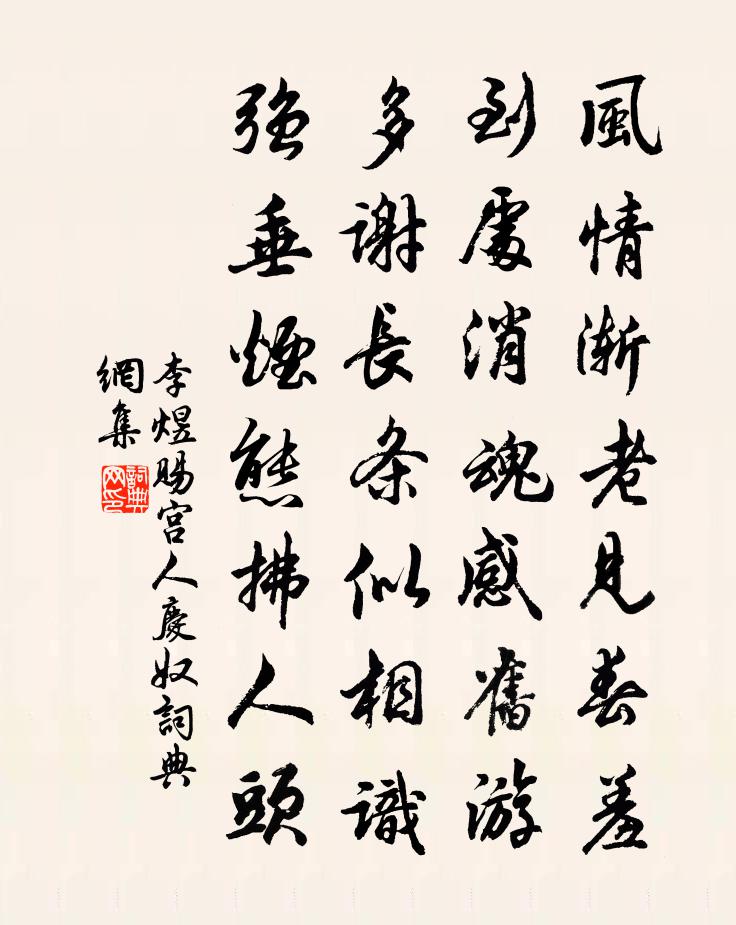 風情漸老見春羞
到處消魂感舊游
多謝長条似相識
強垂煙態拂人頭
李煜賜宮人慶奴詞典
網集
詞典網印